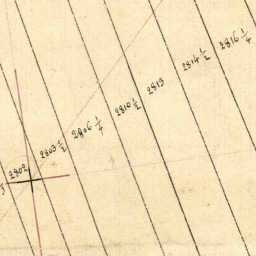 2802
2803 ½
2806 ¼
2810 ½
2813
2814 ½
2816 ¼